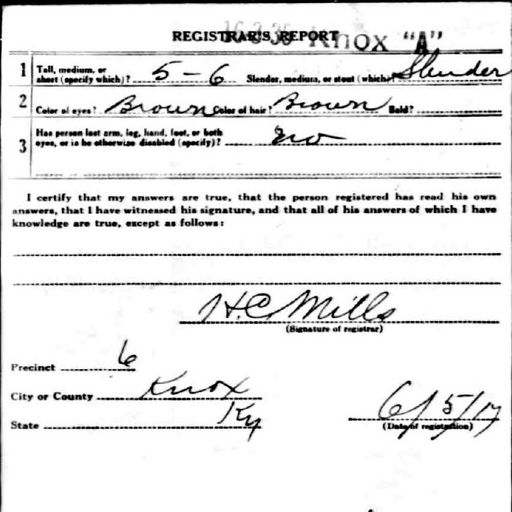 REGISTRAR'S REPORT
16-3-36 Knox "A"
1 Tall, medium, or short (specify which)? 5 - 6 Slender, medium, or stout (which)? Slender
2 Color of eyes? Brown Color of hair? Brown Bald?
3 Has person lost arm, leg, hand, foot, or both eyes, or is he otherwise disabled (specify)? No
I certify that my answers are true, that the person registered has read his own
answers, that I have witnessed his signature, and that all of his answers of which I have
knowledge are true, except as follows:
H.C. Mills
(Signature of registrar)
Precinct 6
City or County Knox
State Ky
6/5/17
(Date of registration)